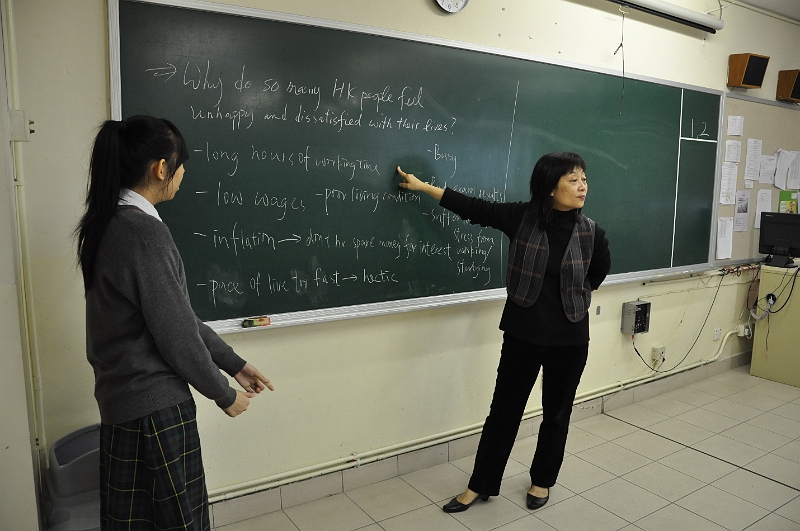 ⇒ Why do so many HK people feel
unhappy and dissatisfied with their lives?
- long hours of working time
- low wages - poor living condition
- inflation → don't hv spare money for interest
- pace of live to fast → hectic
- Busy
exam results
- Suffer
stress from
working/
studying
12